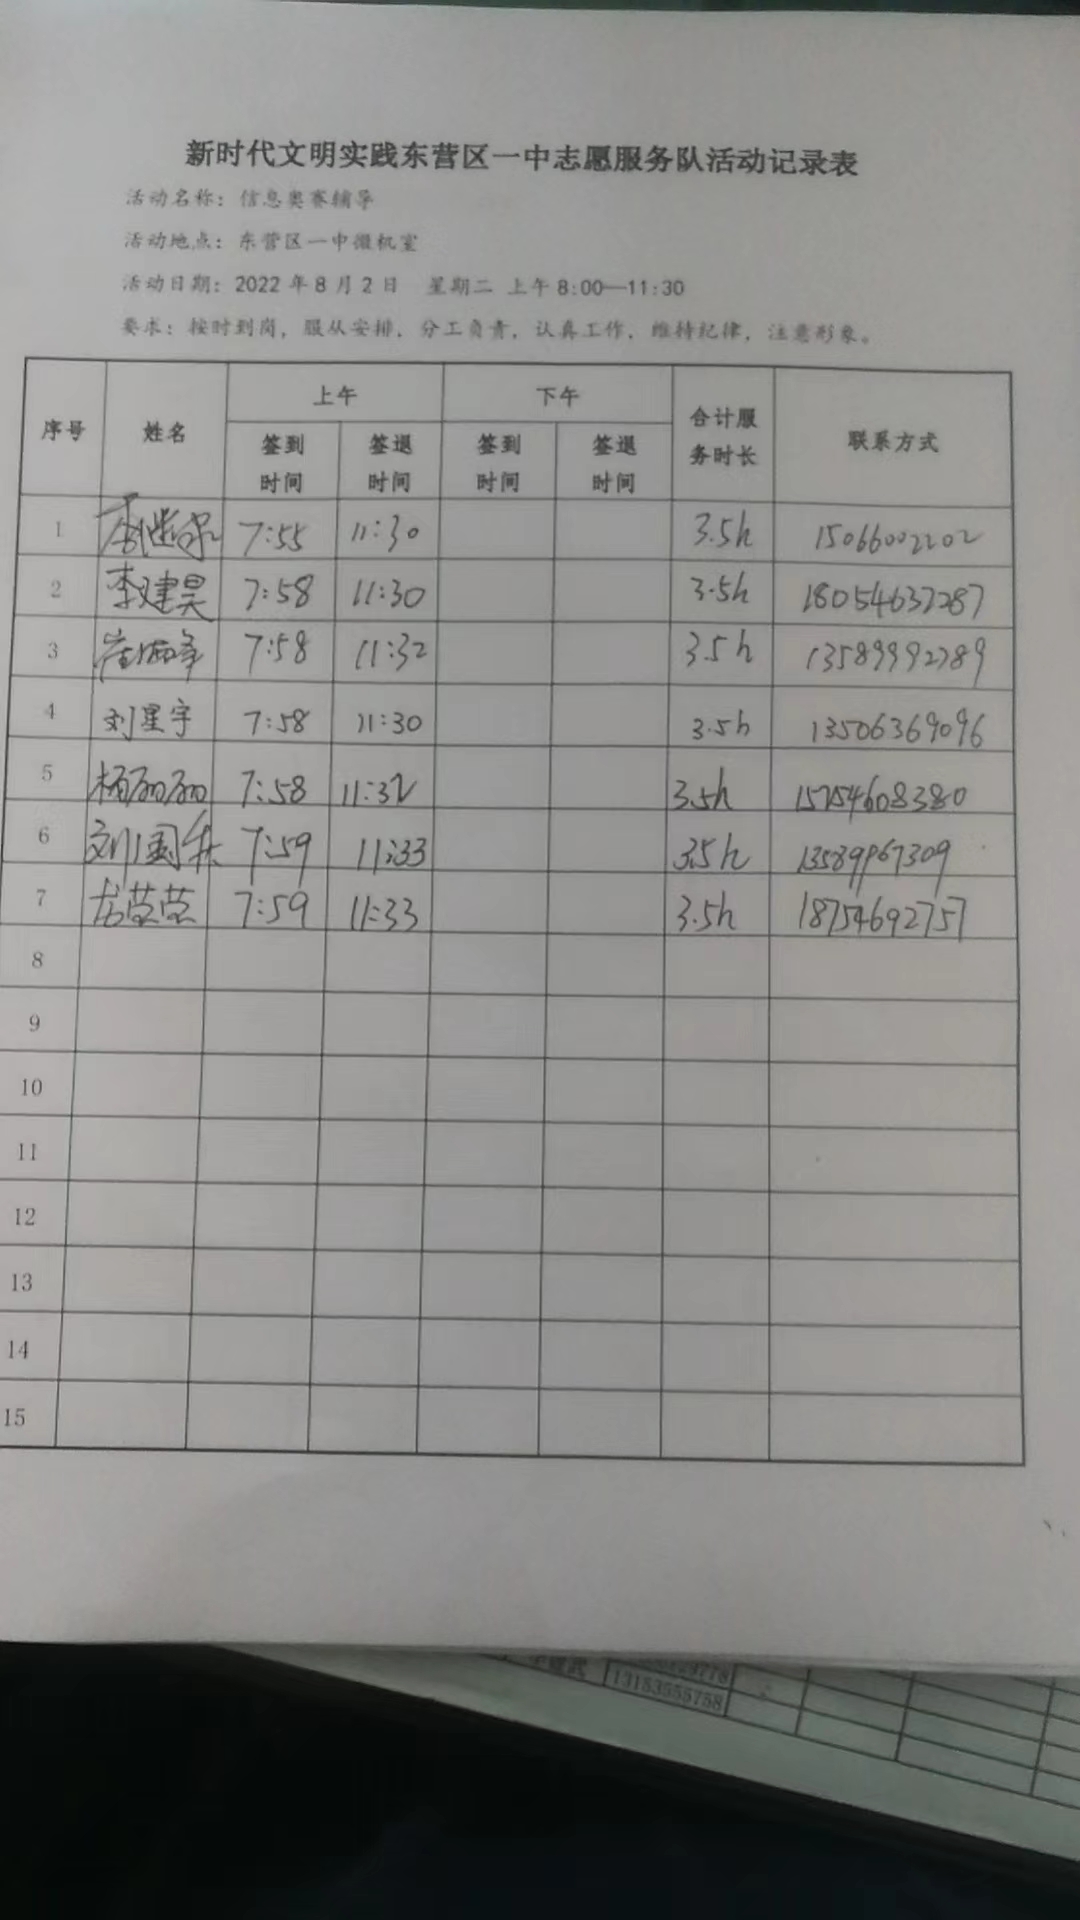 新时代文明实践东营区一中志愿服务队活动记录表
活动名称：信息奥赛辅导
活动地点：东营区一中微机室
活动日期：2022 年 8 月 2 日 星期二 上午 8:00—11:30
要求：按时到岗，服从安排，分工负责，认真工作，维持纪律，注意形象。
序号 姓名 上午 下午 合计服务时长 联系方式
签到时间 签退时间 签到时间 签退时间
1 7:55 11:30 3.5h 15066002202
2 李建昊 7:58 11:30 3.5h 18054637287
3 7:58 11:32 3.5h 13589992789
4 刘星宇 7:58 11:30 3.5h 13506369096
5 杨丽丽 7:58 11:32 3.5h 15754608380
6 7:59 11:33 3.5h 13589967309
7 7:59 11:33 3.5h 18754692757
8
9
10
11
12
13
14
15
13153555758